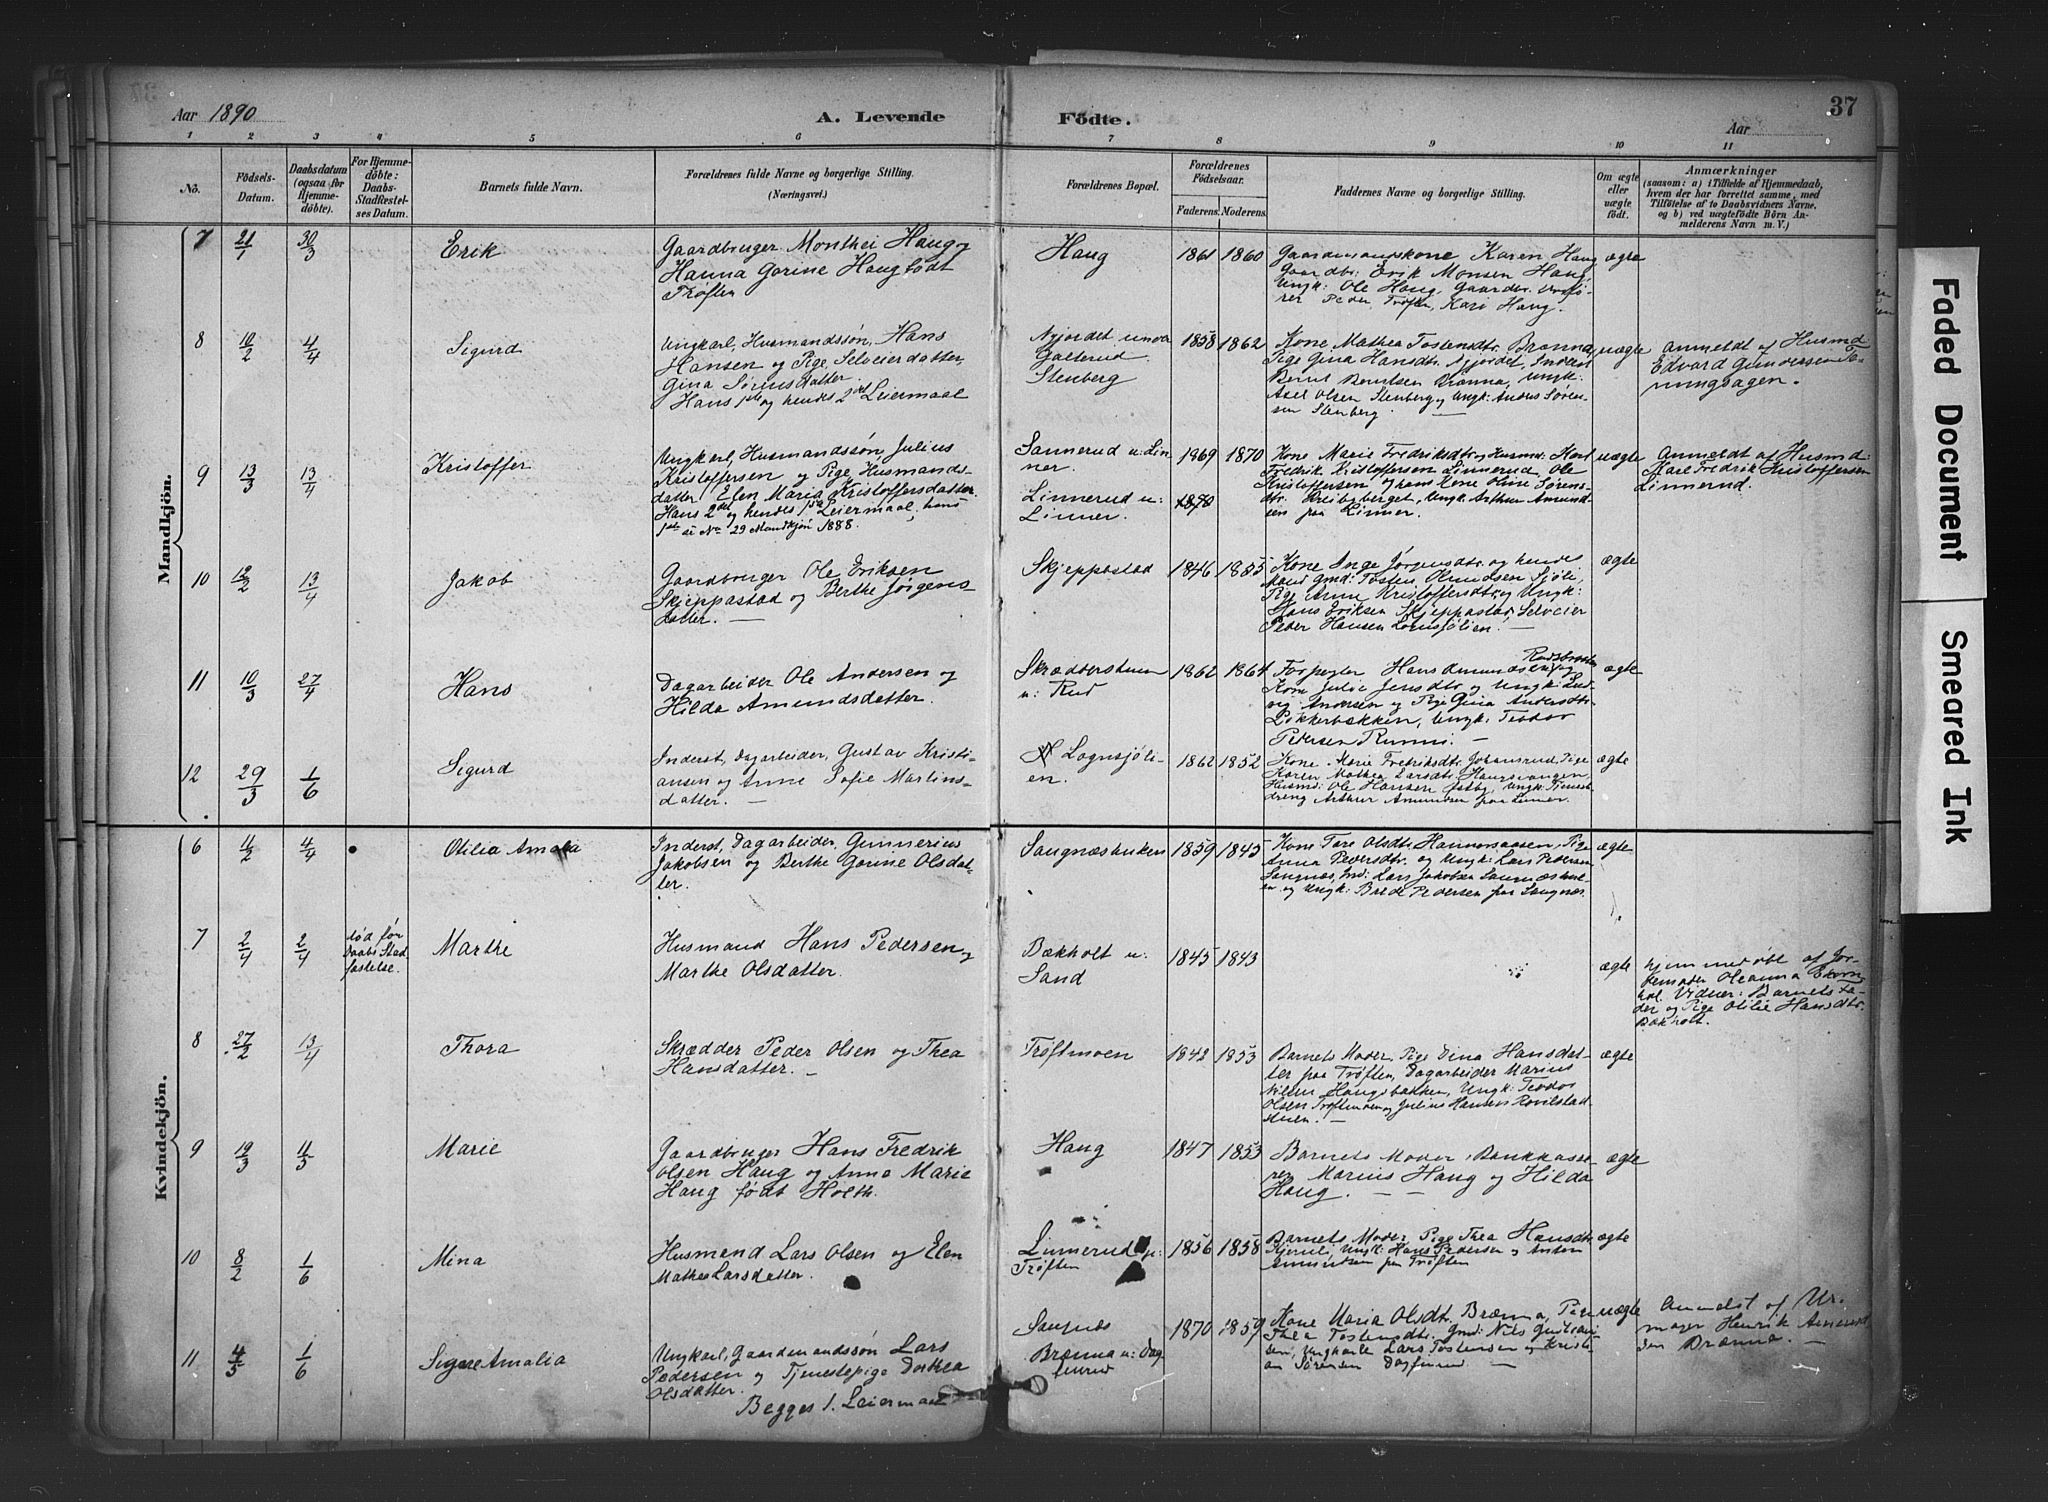 Aar 1890
A. Levende Födte.
Aar
37
1 2 3 4 5 6 7 8 9 10 11
No.
Födsels-
Datum.
Daabsdatum
(ogsaa for
Hjemme-
döbte).
For Hjemme-
döbte:
Daabs-
Stadfæstel-
ses Datum.
Barnets fulde Navn.
Forældrenes fulde Navne og borgerlige Stilling.
(Næringsvei.)
Forældrenes Bopæl.
Forældrenes
Födselsaar.
Faderens. Moderens.
Faddernes Navne og borgerlige Stilling.
Om ægte
eller
uægte
födt.
Anmærkninger
(saasom: a) i Tilfælde af Hjemmedaab,
hvem der har forrettet samme, med
Tilföielse af to Daabsvidners Navne,
og b) ved uægtefödte Börn An-
melderens Navn m. V.)
Mandkjön.
7 21/1 30/3 Erik
Gaardbruger Monthei Haug og
Hanna Gorine Haug født
Trøften
Haug 1861 1860
Gaardmandskone Karen Haug
Gaardbr: Erik Monsen Haug
Ungk: Ole Haug, Gaardbr.
Peder Trøften, Kari Haug.
ægte
8 10/2 4/4 Sigurd
Ungkarl, Husmandssøn, Hans
Hansen og Pige, Selveierdatter,
Gina Sørensdatter.
Hans 1ste og hendes 2det Leiermaal
Nyjordet under
Galterud
Stenberg
1858 1862
Kone Mathea Tostensdtr. Brænna,
Pige Gina Hansdtr. Nyjordet, Inderst
Bernt Berntsen Brænna, Ungk:
Axel Olsen Stenberg og Ungk: Anders Søren-
sen Stenberg.
uægte
Anmeldt af Husmd
Edvard Gundersen

9 13/3 13/4 Kristoffer
Ungkarl, Husmandssøn, Julius
Kristoffersen og Pige, Husmands-
datter, Elen Maria Kristoffersdatter.
Hans 2det og hendes 1ste Leiermaal, hans
1ste se No 29 Mandkjøn 1888.
Sannerud u: Lin-
ner.
Linnerud u:
Linner.
1869 1870
1870
Kone Marie Fredriksdtr og Husmd: Karl
Fredrik Kristoffersen Linnerud, Ole
Kristoffersen og hans Kone Oline Sørens-
dtr. Ungk: Arthur Amund-
sen paa Linner.
uægte
Anmeldt af Husmd:
Karl Fredrik Kristoffersen
Linnerud.
10 12/2 13/4 Jakob
Gaardbruger Ole Eriksen
Skjeppastad og Berthe Jørgens-
datter.
Skjeppastad 1846 1855
Kone Inge Jørgensdtr. og hendes
Mand Gmd: Tosten Amundsen Sjøli,
Pige Anne Kristoffersdtr. og Ungk:
Hans Eriksen Skjeppastad, Selveier
Peder Hansen Lognsjølien.
ægte
11 10/3 27/4 Hans
Dagarbeider Ole Andersen og
Hilda Amundsdatter.
Skrædderstuen
u: Rud
1862 1864
Forpagter Hans Amundsen og
Kone Julie Jensdtr. og Ungk: Lud-
vig Andersen og Pige Gina Andersdtr.
Løkkerbakken, Ungk: Teodor
Pedersen
ægte
12 29/3 1/6 Sigurd
Inderst, Dagarbeider, Gustav Kristi-
ansen og Anne Sofie Martins-
datter.
Lognsjøli-
en.
1862 1852
Kone Marie Fredriksdtr. Johansrud, Pige
Karen Mathea Larsdtr. Haugsvangen,
Husmd: Ole Hansen Østby, Ungk: Tjeneste-
dreng Arthur Amundsen paa Linner.
ægte
Kvindekjön.
6 11/2 4/4 Otilia Amalia
Inderst, Dagarbeider, Gunnerius
Jakobsen og Berthe Gorine Olsdat-
ter.
Saugnæsbuken 1859 1845
Kone Tore Olsdtr. Hammersaasen, Pige
Anna Pedersdtr. og Ungk: Lars Pedersen
Saugnæs, Ind: Lars Jakobsen Saugnæsbuk-
en og Ungk: Brede Pedersen paa Saugnæs.
ægte
7 2/4 2/4 død før
Daabs Stad
fæstelse.
Marthe
Husmand Hans Pedersen og
Marthe Olsdatter.
Bækholt u:
Sand
1845 1843
ægte
hjemmedøbt af Jor-
demoder Oleanna
Vidner: Barnets Fa-
der og Pige Otilie Hansdtr.
Bækholt.
8 27/2 13/4 Thora
Skrædder Peder Olsen og Thea
Hansdatter.
Trøftmoen 1842 1853
Barnets Moder, Pige Dina Hansdat-
ter paa Trøften, Dagarbeider Marius
Nilsen Haugsbakken, Ungk: Teodor
Olsen Trøftmoen og Julius Hansen Rovilstad
stuen.
ægte
9 19/3 11/5 Marie
Gaardbruger Hans Fredrik
Olsen Haug og Anne Marie
Haug født Holth.
Haug 1847 1853
Barnets Moder, Bankkasse-
rer Marius Haug og Hilda
Haug.
ægte
10 8/2 1/6 Mina
Husmand Lars Olsen og Elen
Mathea Larsdatter.
Linnerud u:
Trøften
1856 1858
Barnets Moder, Pige Thea Hansdtr.
Ungk: Hans Pedersen og Anton
Amundsen paa Trøften
ægte
11 4/5 1/6 Signe Amalia
Ungkarl, Gaardmandssøn Lars
Pedersen og Tjenestepige Dorthea
Olsdatter.
Begges 1. Leiermaal
Saugnæs
Brænna u: Dag-
finrud
1870 1859
Kone Maria Olsdtr. Brænna, Pige
Thea Tostensdtr. Gmd: Nils Gulliani-
sen, Ungkarle Lars Tostensen og Kristi-
an Sørensen Dagfinrud
uægte
Anmeldt af Ur-
mager Henrik Amund-
sen Brænna.
Faded Document
Smeared Ink